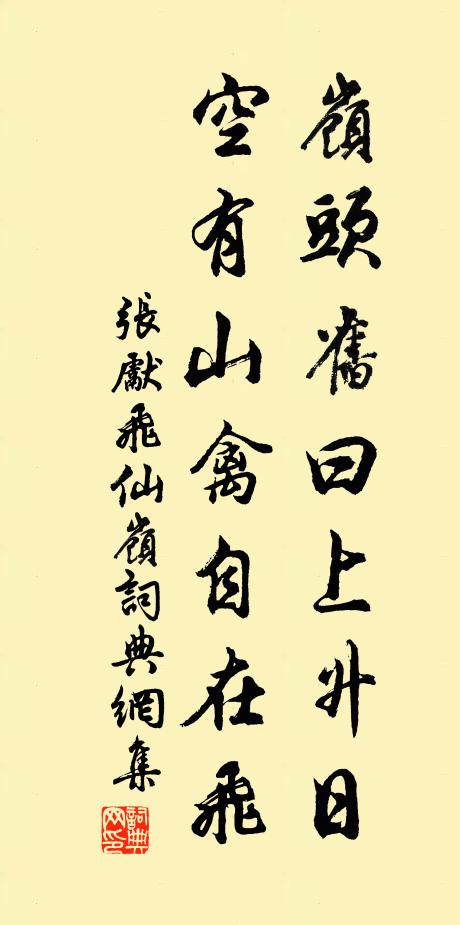 嶺頭舊曰上升日
空有山禽自在飛
張獻飛仙嶺詞典網集
詞典網印